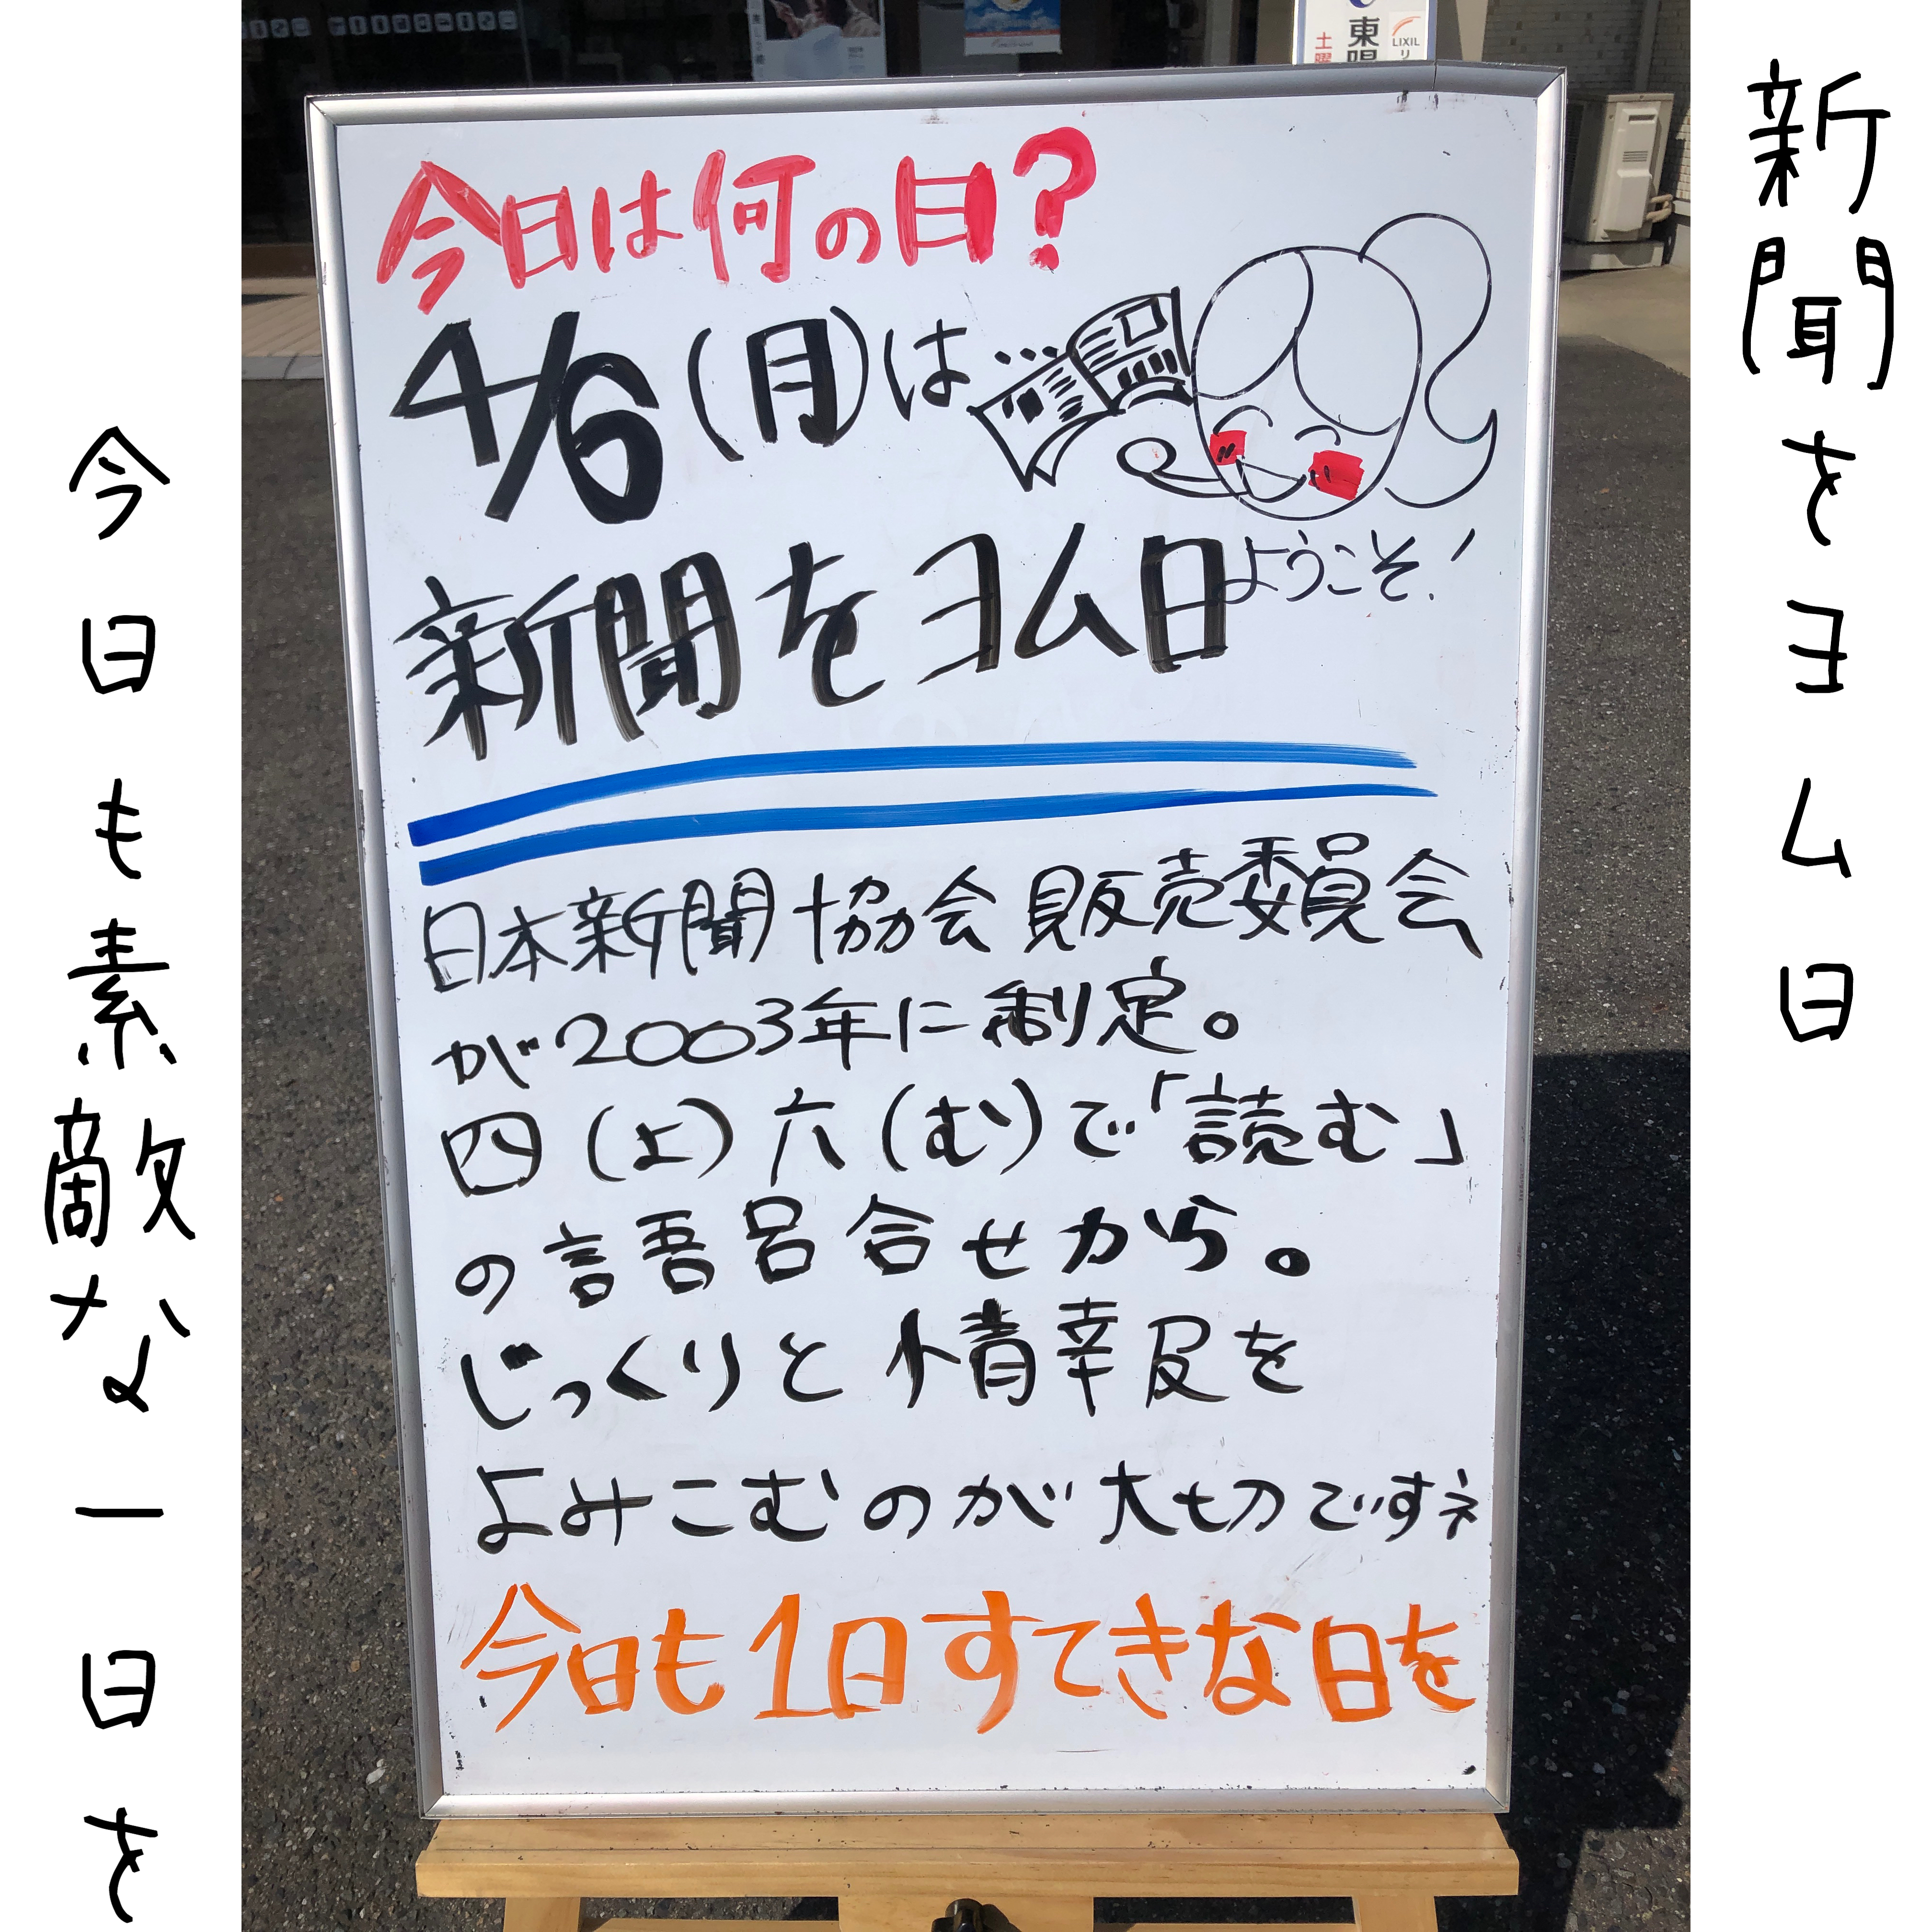 新聞をヨム日
東陽
LIXIL
リ
土曜
今日は何の日?
4/6(月)は…
新聞をヨム日
ようこそ!
日本新聞協会販売委員会
が2003年に制定。
四(よ)六(む)で「読む」
の語呂合せから。
じっくりと情報を
よみこむのが大切ですネ
今日も1日すてきな日を
今日も素敵な一日を